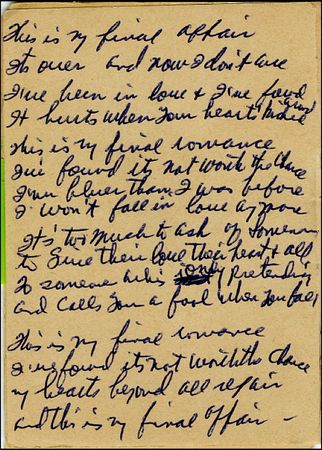 This is my final affair
Its over and now I don't care
I've been in love & I've found
It hurts when your hearts
This is my final romance
I've found its not worth the chance
I'm bluer than I was before
I won't fall in love anymore
It's to much to ask of someone
to give their love their heart & all
To someone who's only pretending
and calls you a fool when you fall
This is my final romance
I've found its not worth the chance
my hearts beyond all repair
and this is my final affair –